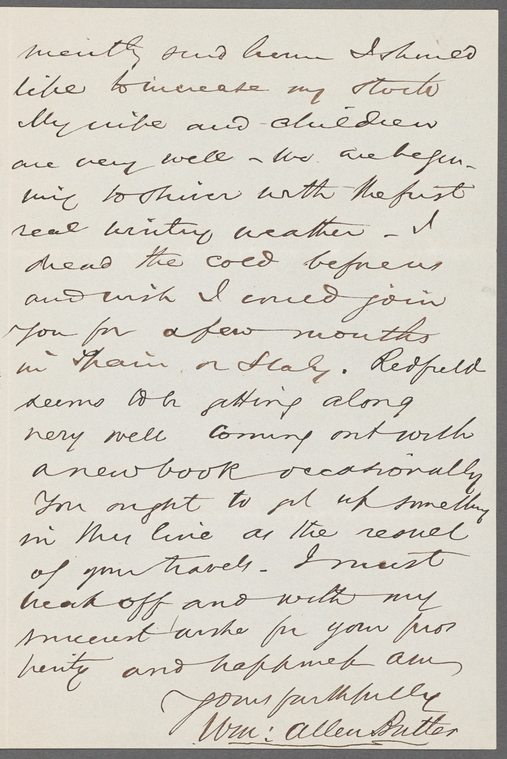 mently send home I should
like to increase my stock
My wife and children
are very well - We are begin-
ning to shiver with the first
real wintry weather - I
dread the cold before us
and wish I could join
you for a few months
in Spain or Italy. Redfield
seems to be getting along
very well coming out with
a new book occasionally
You ought to get up something
in this line as the result
of your travels. I must
break off and with my
sincerest wishes for your pros
perity and happiness am
yours faithfully
Wm: Allen Butler